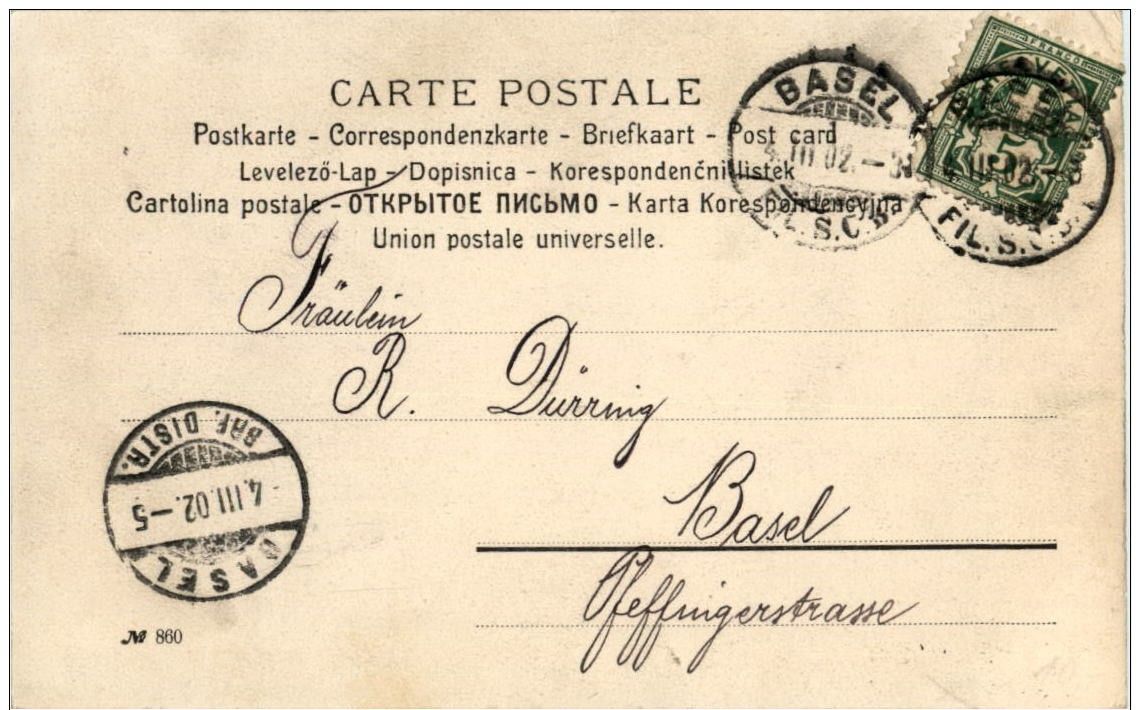 CARTE POSTALE
Postkarte - Correspondenzkarte - Briefkaart - Post card
Levelező-Lap - Dopisnica - Korespondenčni listek
Cartolina postale - ОТКРЫТОЕ ПИСЬМО - Karta Korespondencyjna
Union postale universelle.
BASEL
4.III.02.
FIL. S.C.B.
FRANCO
5
4.III.02.
FIL. S.C.B.
Fräulein
R. Dürring
Basel
Pfeffingerstrasse
BRF. DISTR.
4.III.02.-5
BASEL
№ 860